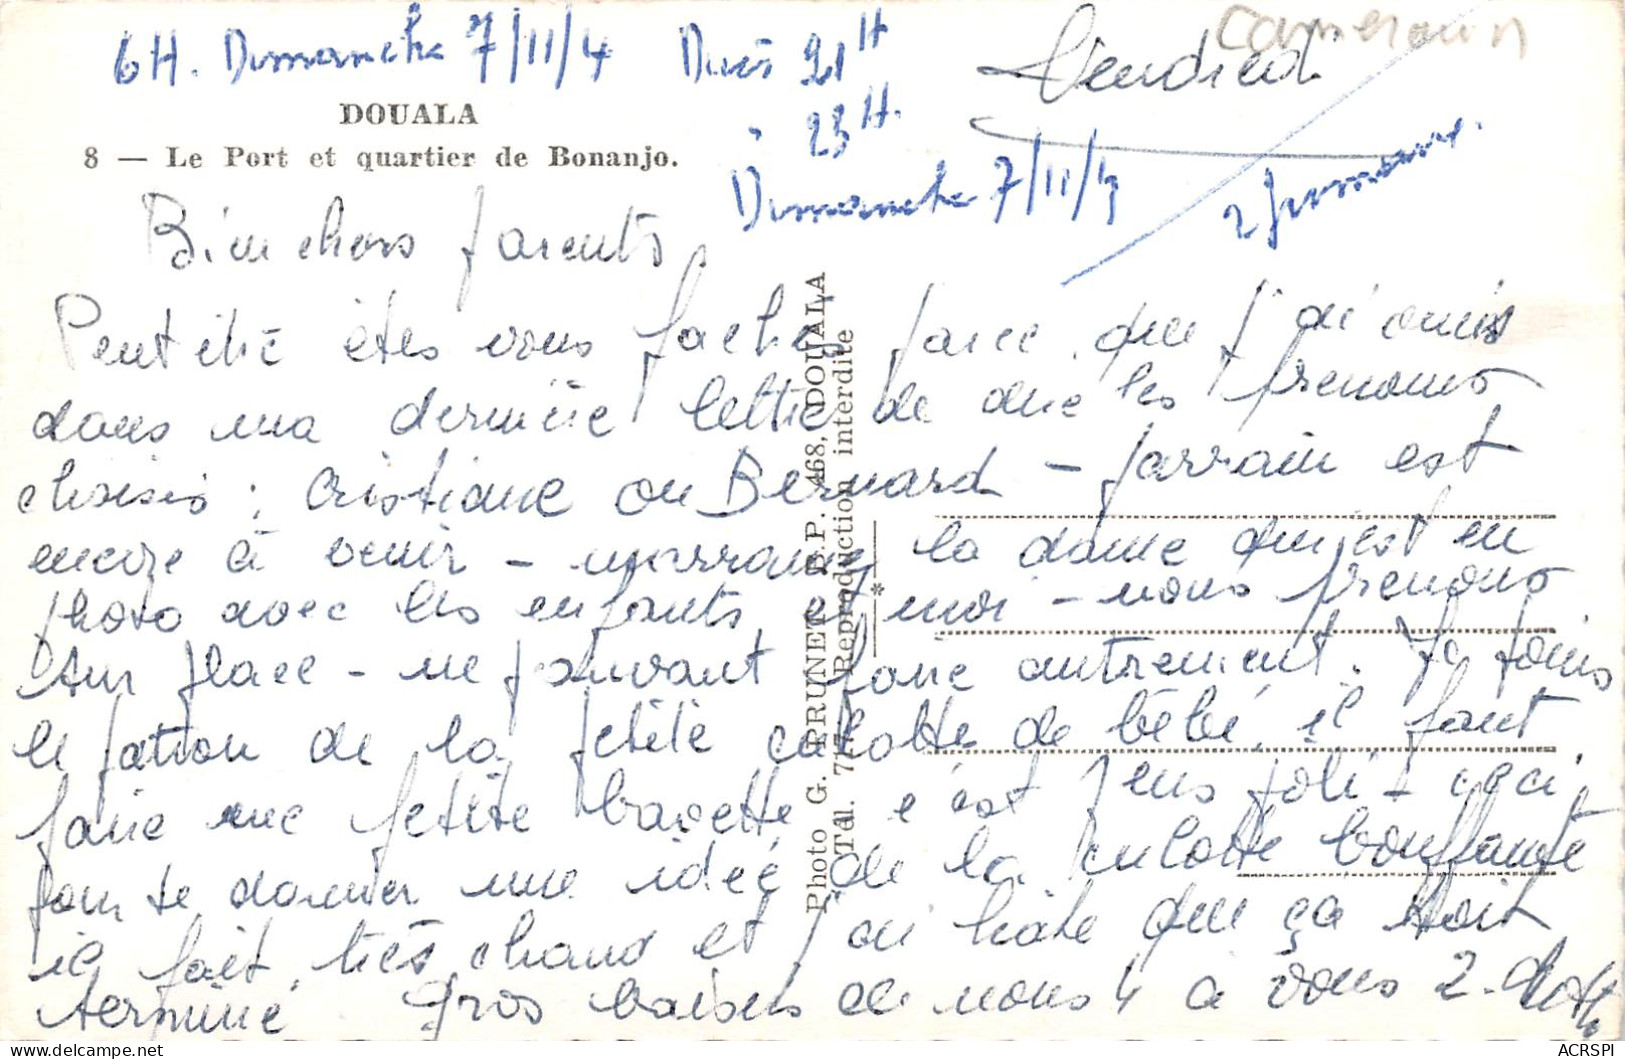 Cameroun
6H. Dimanche 7/11/4
21H
à 23H.
Dimanche 7/11/4
Vendredi
2 semaines.
DOUALA
8 — Le Port et quartier de Bonanjo.
Bien chers parents,
Peut être êtes vous fachés parce que j'ai omis
dans ma dernière lettre de dire les prénoms
choisis : Cristiane ou Bernard - parrain est
encore à venir - marraine la dame qui est en
photo avec les enfants et moi - nous prenons
sur place - ne pouvant faire autrement. Je joins
le patron de la petite culotte de bébé, il faut
faire une petite bavette, c'est plus joli - ceci
pour te donner une idée de la culotte bouffante
il fait très chaud et j'ai hâte que ça soit
terminé Gros baisers de nous 4 à vous 2.
Photo G. PRUNET B.P. 468, DOUALA
Tél. Reproduction interdite
ACRSPI